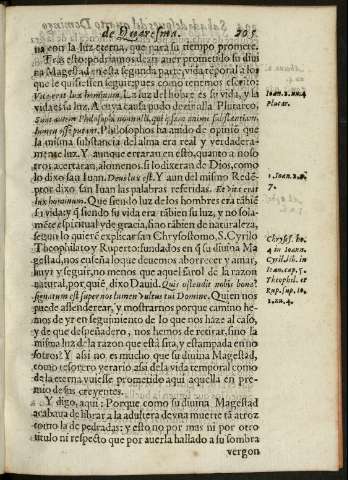 de Quaresma. 205
na con la luz eterna, que para su tiempo promete.
Tras esto podriamos dezir auer prometido su diui
na Magestad en esta segunda parte, vida téporal a los
que le quisiessen seguir, pues como tenemos escrito:
Vita erat lux hominum. La luz del hóbre es su vida, y la
vida es la luz. A cuya causa pudo dezir alla Plutarco.
Sunt autem Philosophi nonnulli, qui ipsam animi substantiam,
lumen esse putant. Philosophos ha auido de opinió que
la misma substancia del alma era real y verdadera-
mente luz. Y aunque erraran en esto, quanto a noso
tros acertaran, alomenos si lo dixeran de Dios, como
lo dixo san Iuan. Deus lux est. Y aun del mismo Redé-
ptor dixo san Iuan las palabras referidas. Et vita erat
lux hominum. Que siendo luz de los hombres era tábié
su vida: y q̃ siendo su vida era tábien su luz, y no sola-
méte espiritual y de gracia, sino tábien de naturaleza,
segun lo quieré explicar san Chrysostomo, S. Cyrilo
Theophilato y Ruperto: fundados en q̃ su diuina Ma
gestad, nos enseña lo que deuemos aborrecer y amar,
huyr y seguir, no menos que aquel farol de la razon
natural, por quié dixo Dauid. Quis ostendit nobis bona?
signatum est super nos lumen vultus tui Domine. Quien nos
puede assenderear, y mostrarnos porque camino he-
mos de yr en seguimiento de lo que nos haze al caso,
y de que despeñadero, nos hemos de retirar, sino la
misma luz de la razon que està sita, y estampada en no
sotros? Y assi no es mucho que su diuina Magestad,
como tesorero
de la eterna, vuiesse prometido aqui aquella en pre-
mio de sus creyentes.
Y digo, aqui: Porque como su diuina Magestad
acabaua de librar a la adultera de vna muerte tá atroz
como la de pedradas: y esto, no por mas ni por otro
titulo ni respecto que por auerla hallado a su sombra
vergon
Ioan. 1. nu. 4
Plutar.
1. Ioan. 1. n.
7.
Chrysos. ho.
4 in Ioann.
Cyril. lib. in
Ioan. cap. 5.
Theophil. et
Rup. sup. 10.
1. nu. 4.